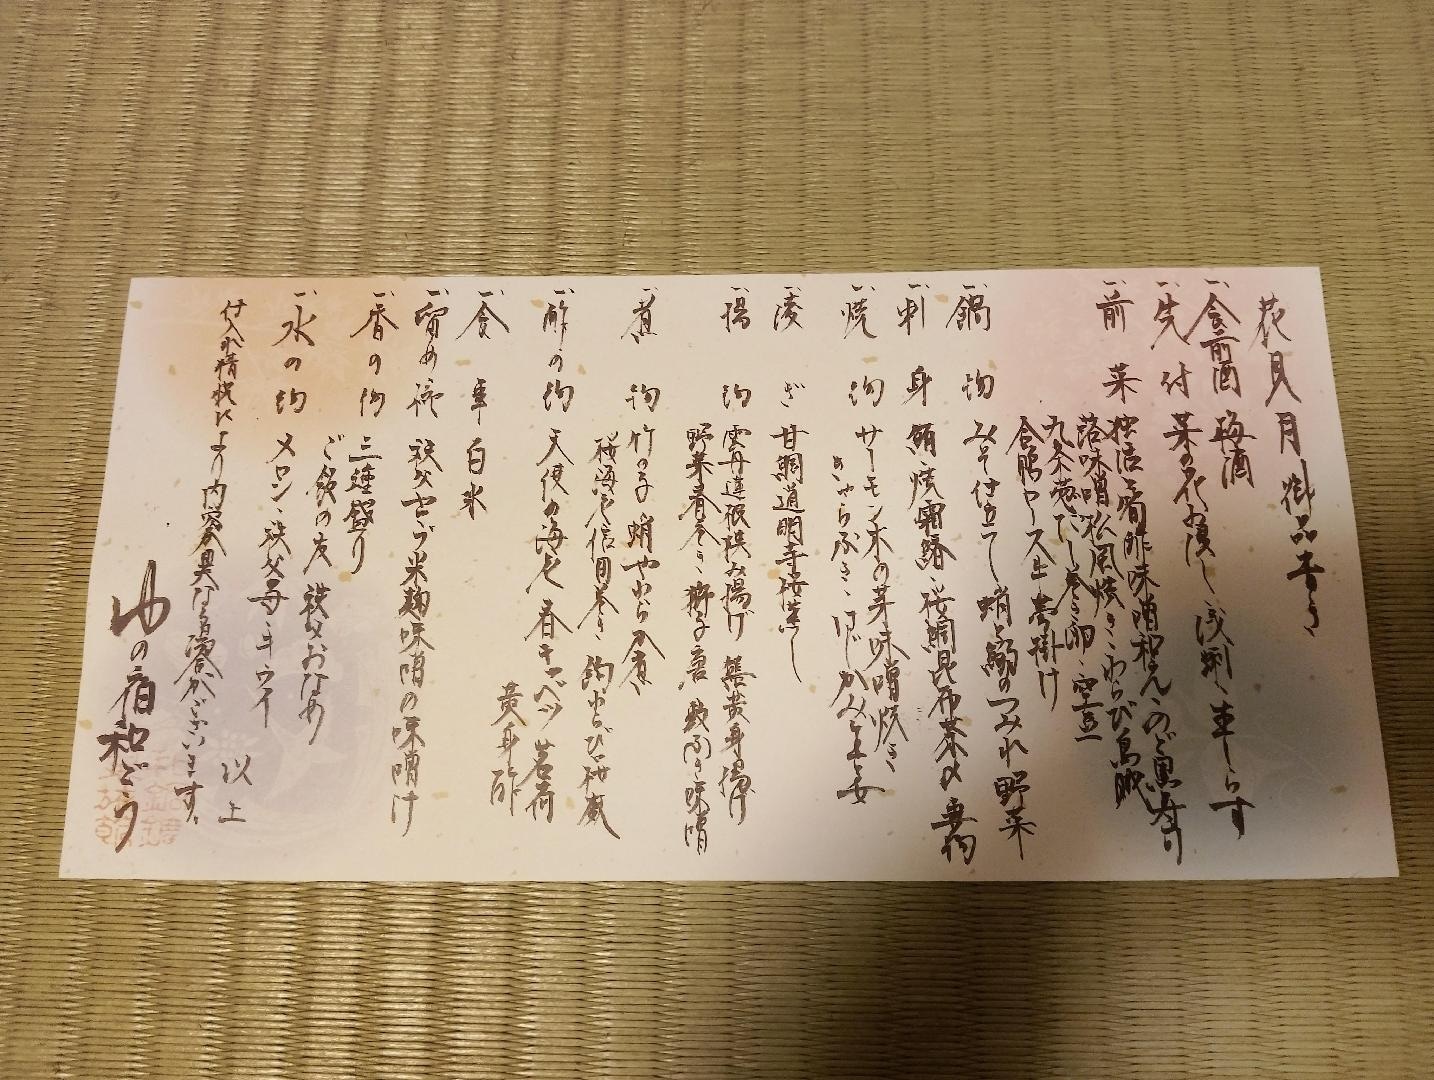 花見月 御品書き
一、食前酒 梅酒
一、先付 菜の花お浸し 浅利、生しらす
一、前菜 独活と蛍烏賊酢味噌和え、のど黒寿司
蕗味噌松風焼き、わらび烏賊
九条葱だし巻き卵、空豆
合鴨ロース上 掛け
一、鍋物 みそ仕立て 蛸と鰯のつみれ 野菜
一、刺身 鮪焼霜鱠、桜鯛昆布茶〆 妻物
一、焼物 サーモン木の芽味噌焼き
きゃらぶき、はじかみ生姜
一、凌ぎ 甘鯛道明寺桜蒸し
一、揚物 雲丹蓮根挟み揚げ 蟹黄身揚げ
野菜春巻き、獅子唐 敷ふき味噌
一、煮物 竹の子 蛸やわらか煮、
桜海老信田巻き 鈎わらび 桜麩
一、酢の物 天使の海老 春キャベツ 茗荷
黄身酢
一、食事 白米
一、留め椀 秩父 米麹味噌の味噌汁
一、香の物 三種盛り
ご飯の友 秩父おなめ
一、水の物 メロン、秩父苺、キウイ
以上
仕入の情況により内容異なる場合がございます。
ゆの宿 和どう